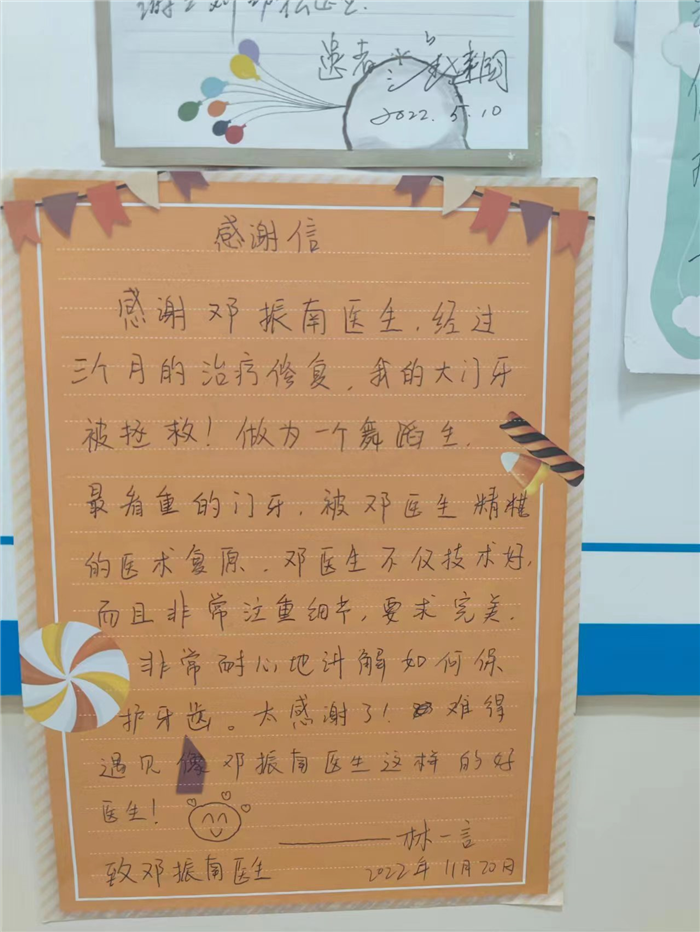 患者
2022.5.10
感谢信
感谢邓振南医生,经过
三个月的治疗修复,我的大门牙
被拯救!做为一个舞蹈生,
最看重的门牙,被邓医生精湛
的医术复原,邓医生不仅技术好,
而且非常注重细节,要求完美,
非常耐心地讲解如何保
护牙齿。太感谢了!难得
遇见像邓振南医生这样的好
医生!
——林一言
致邓振南医生 2022年11月20日